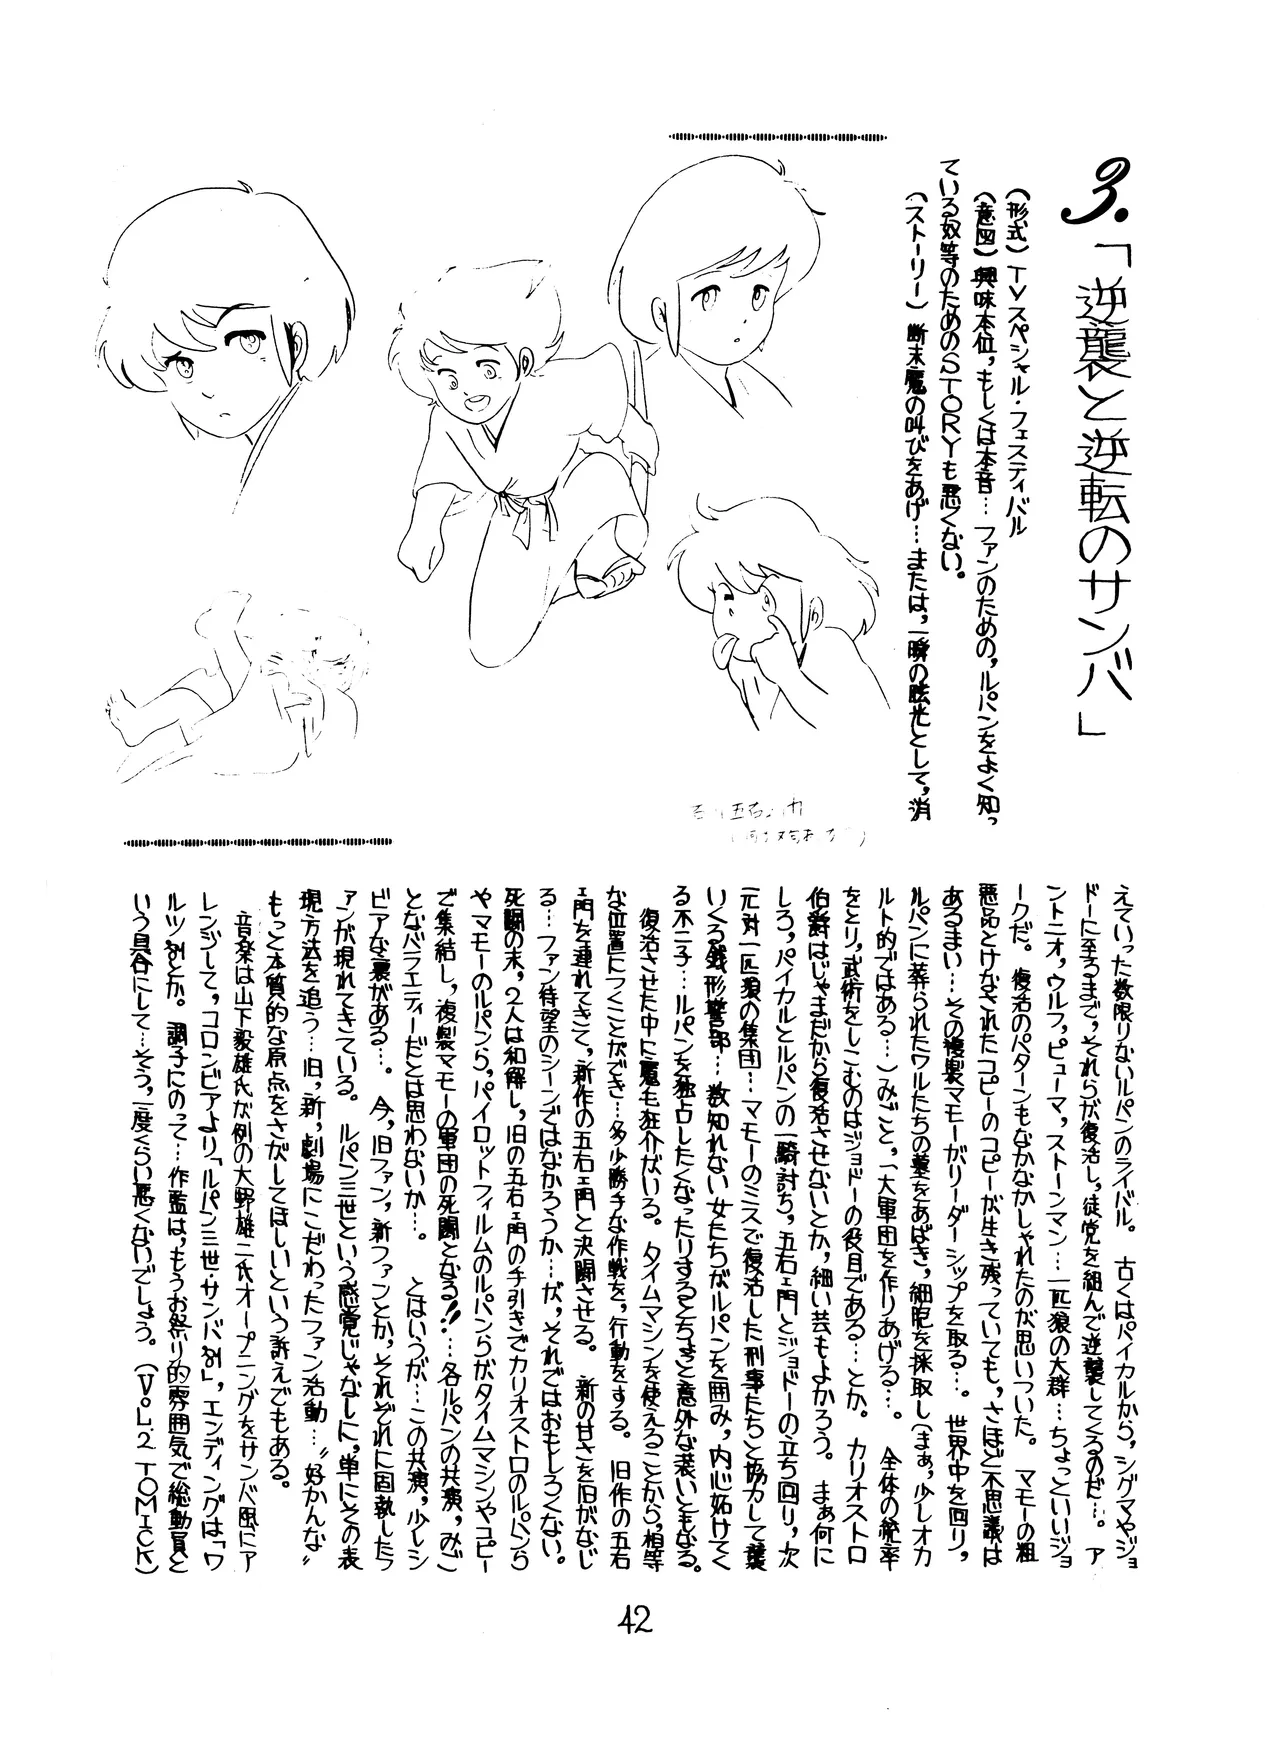 3.「逆襲と逆転のサンバ」
(形式)TVスペシャル・フェスティバル
(意図)興味本位,もしくは本音…ファンのための,ルパンをよく知っ
ている奴等のためのSTORYも悪くない。
(ストーリー)断末魔の叫びをあげ…または,一瞬の眩光として,消
えていった数限りないルパンのライバル。古くはパイカルから,シグマやジョ
ドーに至るまで,それらが復活し,徒党を組んで逆襲してくるのだ…。ア
ントニオ,ウルフ,ピューマ,ストーンマン…一匹狼の大群…ちょっといいジョ
ークだ。復活のパターンもなかなかしゃれたのが思いついた。マモーの粗
悪品とけなされたコピーのコピーが生き残っていても,さほど不思議は
あるまい…その複製マモーがリーダーシップを取る…。世界中を回り,
ルパンに葬られたワルたちの墓をあばき,細胞を採取し(まぁ,少しオカ
ルト的ではある…)みごと,一大軍団を作りあげる…。全体の統率
をとり,武術をしこむのはジョドーの役目である…とか。カリオストロ
伯爵はじゃまだから復活させないとか,細い芸もよかろう。まぁ何に
しろ,パイカルとルパンの一騎討ち,五右ェ門とジョドーの立ち回り,次
元対一匹狼の集団…マモーのミスで復活した刑事たちと協力して襲
いくる銭形警部…数知れない女たちがルパンを囲み,内心妬けてく
る不二子…ルパンを独占したくなったりするとちょっと意外な装いともなる。
復活させた中に魔毛狂介がいる。タイムマシンを使えることから,相等
な位置につくことができ…多少勝手な作戦を,行動をする。旧作の五右
ェ門を連れてきて,新作の五右ェ門と決闘させる。新の甘さを旧がなじ
る…ファン待望のシーンではなかろうか…が,それではおもしろくない。
死闘の末,2人は和解し,旧の五右ェ門の手引きでカリオストロのルパンら
やマモーのルパンら,パイロットフィルムのルパンらがタイムマシンやコピー
で集結し,複製マモーの軍団の死闘となる!!…各ルパンの共演,みご
となバラエティーだとは思わないか…。とはいうが…この共演,少しシ
ビアな裏がある…。今,旧ファン,新ファンとか,それぞれに固執したフ
ァンが現れてきている。ルパン三世という感覚じゃなしに,単にその表
現方法を追う…旧,新,劇場にこだわったファン活動…〝好かんな〟
もっと本質的な原点をさがしてほしいという訴えでもある。
音楽は山下毅雄氏が例の大野雄二氏オープニングをサンバ風にア
レンジして,コロンビアより「ルパン三世・サンバ'81」,エンディングは「ワ
ルツ'81」とか。調子にのって…作監は,もうお祭り的雰囲気で総動員と
いう具合にして…そう,一度くらい悪くないでしょう。(VOL2 TOMICK)
42